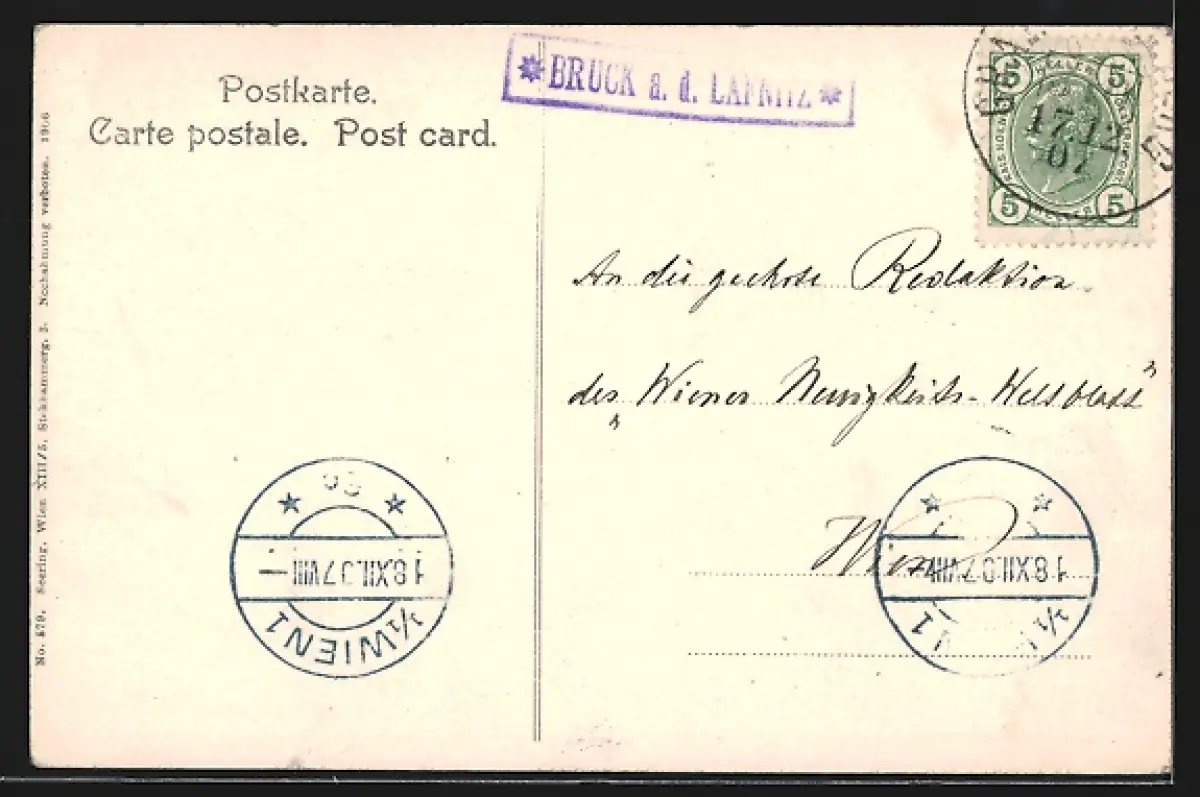 Postkarte.
Carte postale. Post card.
No. 579. Seering, Wien XIII/5, Nachahmung verboten. 1906
✷BRUCK a. d. LAFNITZ✷
5 HELLER 5
17.12
07
5 HELLER 5
An die geehrte Redaktion
des „Wiener Neuigkeits-Weltblatt"
Wien
1/1 WIEN 1
18.XII.07.VIII—
1/1 1
18.XII.07.VIII